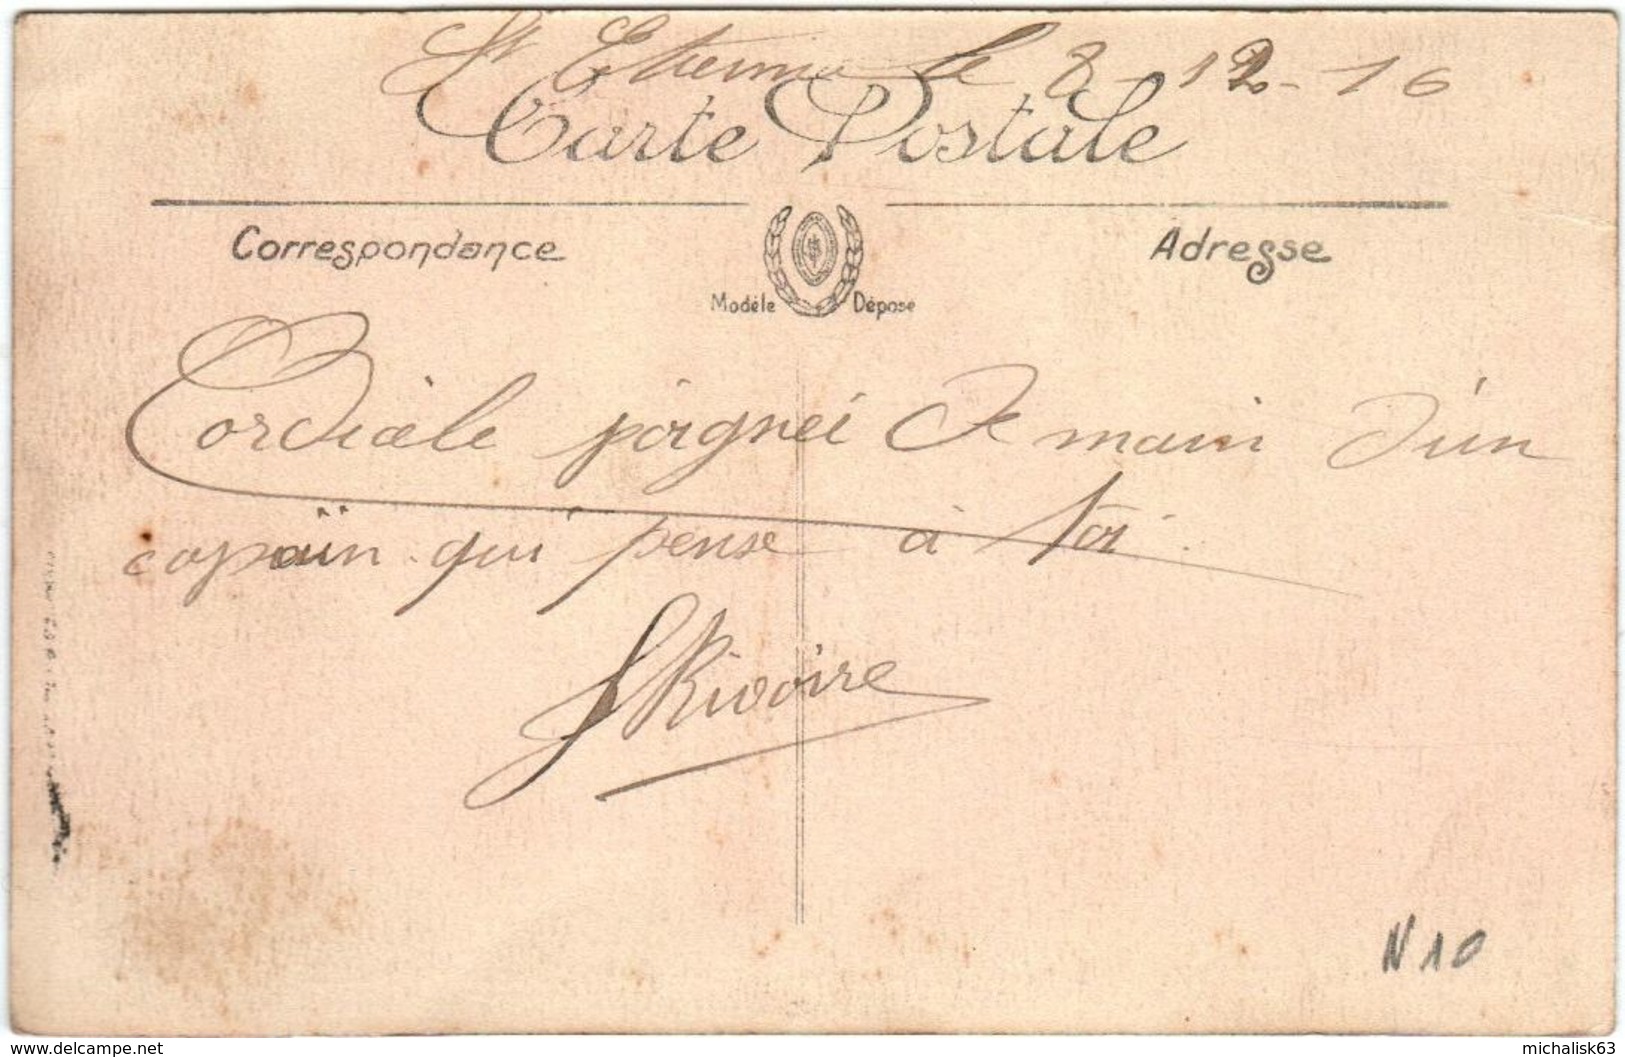 St Etienne le 8-12-16
Carte Postale
Correspondance
Adresse
Modèle Déposé
Cordiale poignée de main d'un
copain qui pense à toi.
Rivoire
N10
www.delcampe.net
michalisk63